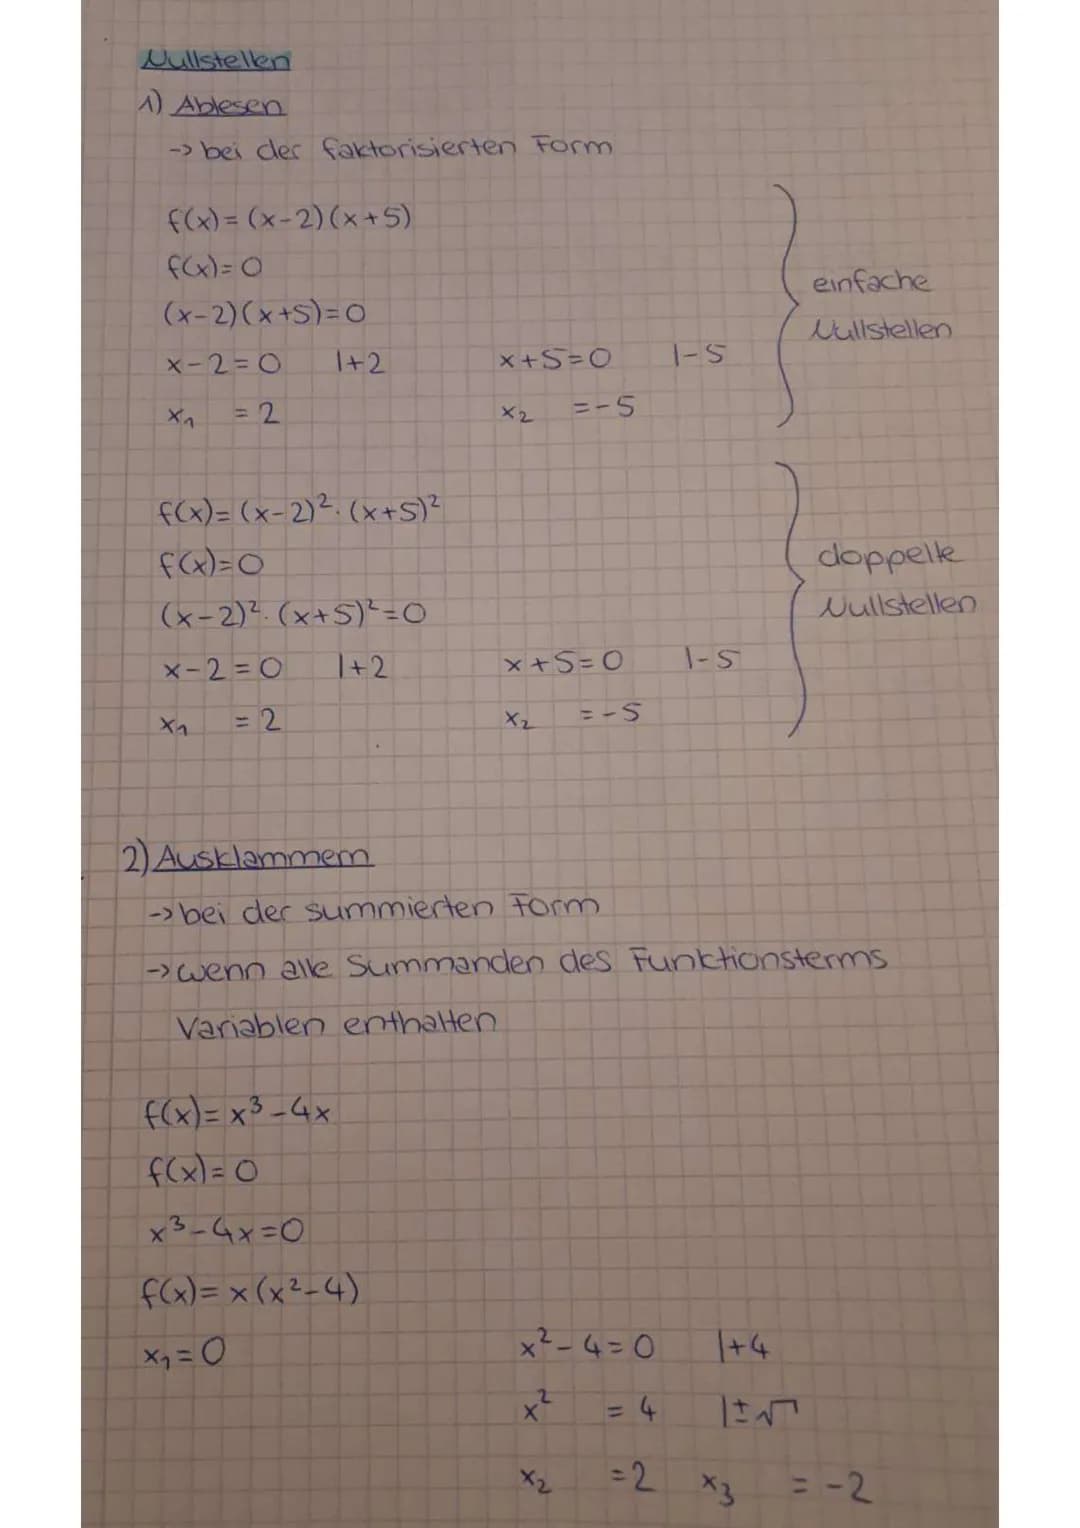 Nullstellen
1) Ablesen
-> bei der faktorisierten Form
f(x) = (x-2)(x+5)
f(x) = 0
(x-2)(x+5) = 0
einfache
Nullstellen
x-2 = 0 |+2 x+5 = 0 |-5
x₁ = 2 x₂ = -5
f(x) = (x-2)² · (x+5)²
f(x) = 0
(x-2)² · (x+5)² = 0
doppelte
Nullstellen
x-2 = 0 |+2 x+5 = 0 |-5
x₁ = 2 x₂ = -5
2) Ausklammern
-> bei der summierten Form
-> wenn alle Summanden des Funktionsterms
Variablen enthalten
f(x) = x³ - 4x
f(x) = 0
x³ - 4x = 0
f(x) = x(x² - 4)
x₁ = 0 x² - 4 = 0 |+4
x² = 4 |±√
x₂ = 2 x₃ = -2